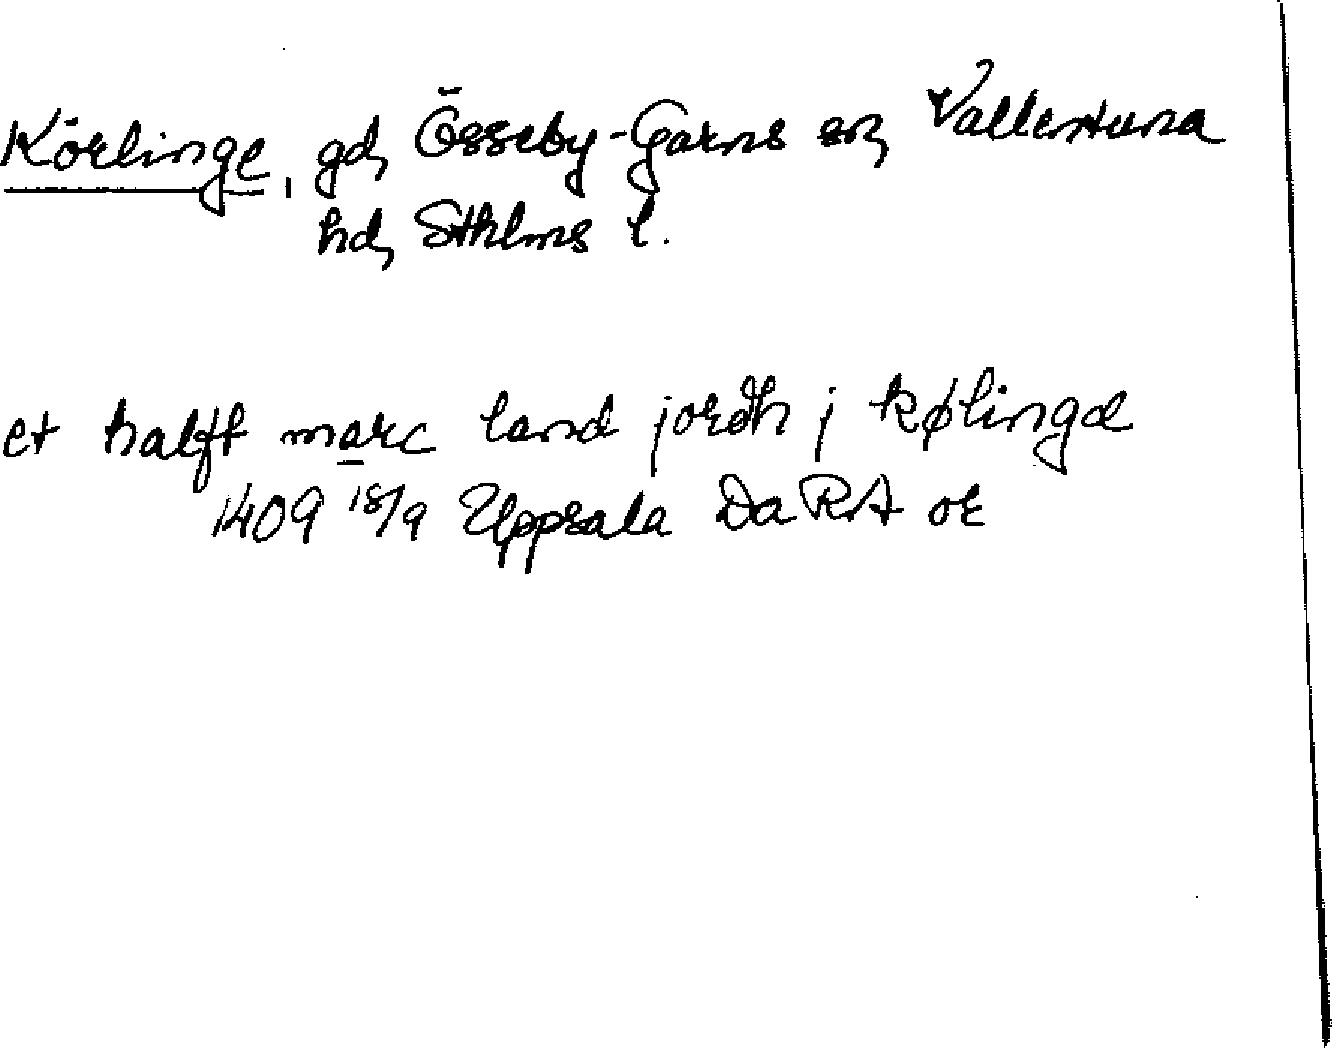 Körlinge, gd, Össeby-Garns sn, Vallentuna
hd, Sthlms l.
et halft marc land jordh j kølingæ
1409 18/9 Uppsala Da RA or